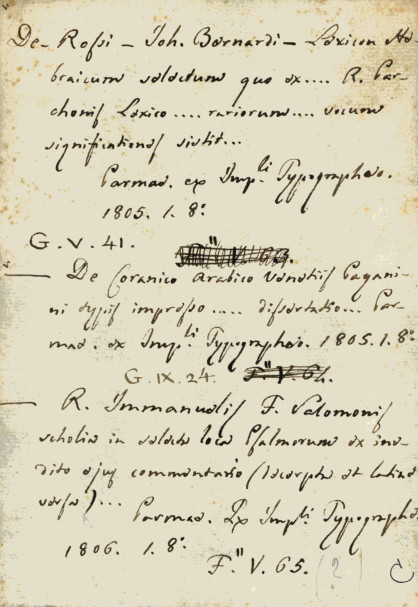 De-Rossi – Joh. Bernardi – Lexicon He-
braicum selectum quo ex.... R. Par-
chonis Lexico .... rariorum.... vocum
significationes sistit...
Parmae. ex Imp.li Typographeo.
1805. 1. 8.°
G. V. 41.
— De Coranico Arabico Venetiis Pagani-
ni typis impresso ..... dissertatio... Par-
mae. ex Imp.li Typographeo. 1805. 1. 8.°
G. IX. 24. F." V. 64.
— R. Immanuelis F. Salomonis
scholia in selecta loca Psalmorum ex ine-
dito ejus commentario (decerpta et latine
versa)...
Parmae. Ex Imp.li Typographeo
1806. 1. 8.°
F." V. 65. (2)